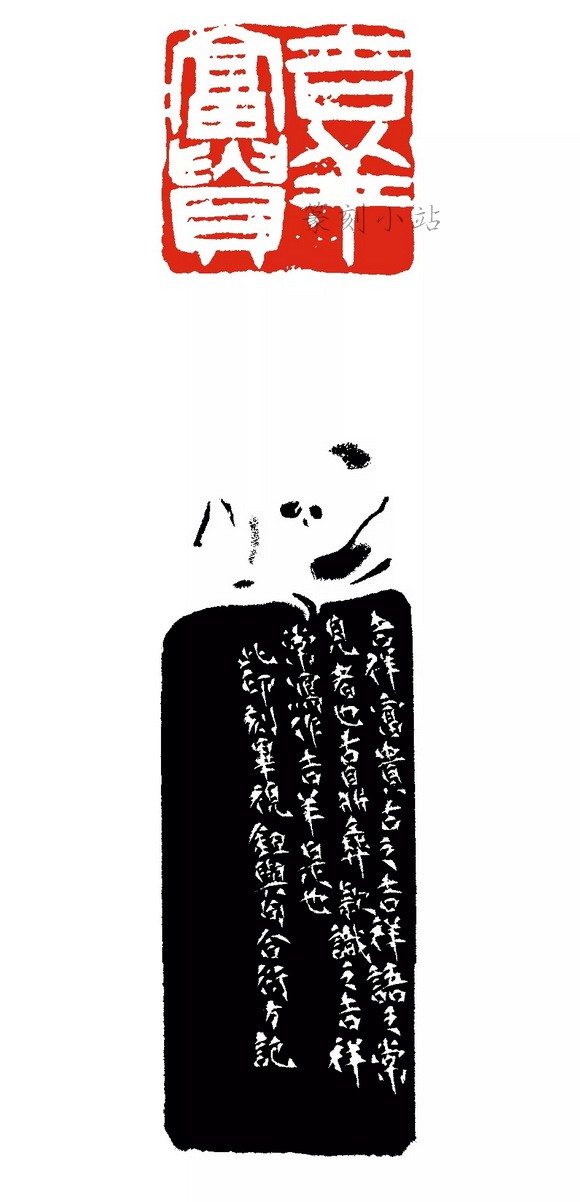 吉羊
富貴
篆刻小站
吉祥富貴古之吉祥語之常
見者也古鼎彝款識之吉祥
常寫作吉羊是也
此印刻畢視鈕與合方記